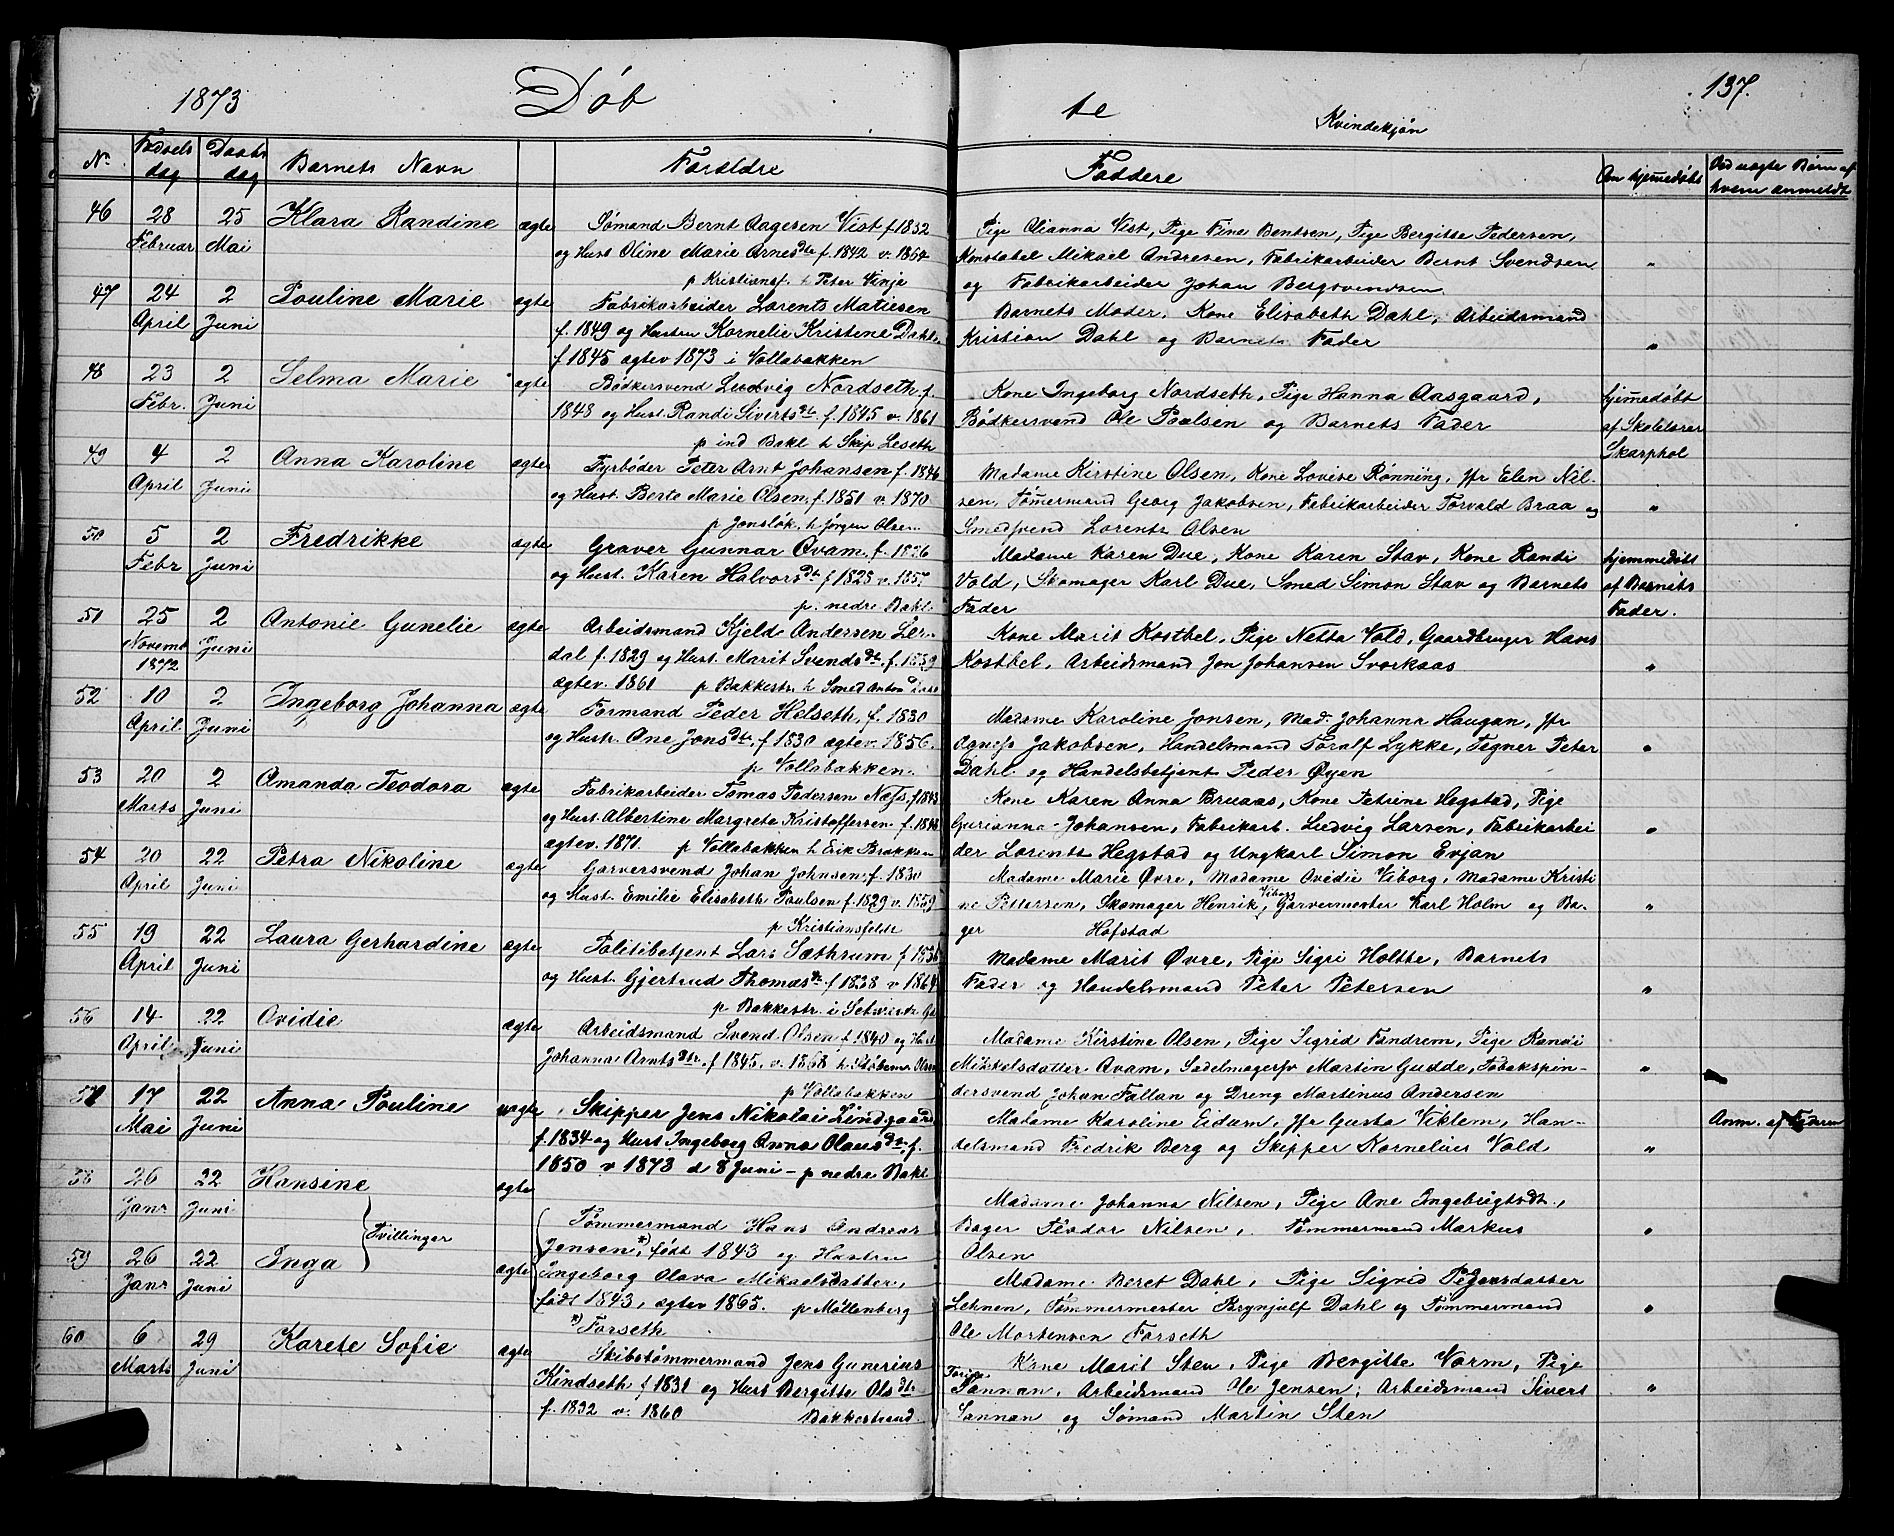 1873 Døb te Kvindekjøn 137.
No Fødsels dag Daabs dag Barnets Navn Forældre Faddere Om hjemmedøbt Ved uægte Børn af hvem anmeldt
46 28 Februar 25 Mai Klara Randine ægte
Sømand Bernt Aagesen Vist f 1832
og Hust Oline Marie Arnesdtr f. 1842 v. 1864
p Kristiansf. h Peter Vinje
Pige Olianna Vist, Pige Fine Bentsen, Pige Bergitte Pedersen,
Konstabel Mikael Andresen, Fabrikarbeider Bernt Svendsen
og Fabrikarbeider Johan Bergsvendsen "
47 24 April 2 Juni Pouline Marie ægte
Fabrikarbeider Lorents Matiesen
f. 1849 og Hustru Kornelie Kristine Dahl
f. 1845 ægtev 1873 i Vollabakken
Barnets Moder, Kone Elisabeth Dahl, Arbeidsmand
Kristian Dahl og Barnets Fader "
48 23 Febr. 2 Juni Selma Marie ægte
Bødkersvend Ludvig Nordseth f.
1848 og Hust. Randi Sivertsdt f. 1845 v. 1861
p ind Bakl h Skip Leseth
Kone Ingeborg Nordseth, Pige Hanna Aasgaard,
Bødkersvend Ole Paalsen og Barnets Fader
hjemedøbt
af Skolelærer
Skarphol
49 4 April 2 Juni Anna Karoline ægte
Fyrbøder Peter Arnt Johansen f. 1846
og Hust. Berte Marie Olsen, f. 1851 v. 1870
p Jonsløk. h Jørgen Olsen
Madame Kirstine Olsen, Kone Lovise Rønning, Jfr Elen Nil-
sen, Tømermand Georg Jakobsen, Fabrikarbeider Torvald Braa og
Smedsvend Lorents Olsen "
50 5 Febr 2 Juni Fredrikke ægte
Graver Gunnar Øvam, f. 1826
og Hust. Karen Halvorsdt f 1828 v. 1857
p. nedre Bakl.
Madame Karen Due, Kone Karen Stav, Kone Randi
Vold, Skomager Karl Due, Smed Simon Stav og Barnets
Fader
hjemmedøbt
af Barnets
Fader.
51 25 Novemb 1872 2 Juni Antonie Gunelie ægte
Arbeidsmand Kjeld Andersen Ler-
dal f. 1829 og Hust. Marit Svendsdt. f. 1839
ægtev. 1861 p Bakkestr. h Smed Anton
Kone Marit Kostbel, Pige Netta Vold, Gaardbruger Hans
Kostbel, Arbeidsmand Jon Johansen Svorkaas "
52 10 April 2 Juni Ingeborg Johanna ægte
Formand Peder Helseth, f. 1830
og Hustr. Ane Jonsdtr. f 1830 ægtev. 1856.
p Vollabakken.
Madame Karoline Jonsen, Mad. Johanna Haugan, Jfr
Agness Jakobsen, Handelsmand Toralf Lykke, Tegner Peter
Dahl og Handelsbetjent Peder Øyen "
53 20 Marts 2 Juni Amanda Teodora ægte
Fabrikarbeider Tomas Pedersen Næss, f 1843
og Hust. Albertine Margrete Kristoffersen f. 1848
ægtev. 1871. p Vollabakken h Erik Brækken
Kone Karen Anna Bruaas, Kone Petrine Hegstad, Pige
Gurianna Johansen, Fabrikarb. Ludvig Larsen, Fabrikarbei
der Lorents Hegstad og Ungkarl Simon Evjan "
54 20 April 22 Juni Petra Nikoline ægte
Garversvend Johan Johnsen, f. 1830
og Hust. Emilie Elisabeth Poulsen f. 1829 v. 1859
p Kristiansfeldt
Madame Marie Øvre, Madame Ovidie Viborg, Madame Kristi
ne Pettersen, Skomager Henrik Viborg, Garvermester Karl Holm og Ba-
ger Hofstad "
55 19 April 22 Juni Laura Gerhardine ægte
Politibetjent Lars Sæthrum f 1836
og Hust. Gjertrud Thomasdt f 1838 v 1864
p Bakkestr. i
Madame Marit Øvre, Pige Sigri Holtte, Barnets
Fader og Handelsmand Peter Petersen "
56 14 April 22 Juni Ovidie ægte
Arbeidsmand Svend Olsen f 1840 og Hust
Johanna Arntsdtr. f 1845. v. 1868 h Støbemr Olsen
p Vollabakken
Madame Kirstine Olsen, Pige Sigrid Fandrem, Pige Randi
Mikkelsdatter Øvam, Sadelmagersv Martin Gudde, Tobakspin-
dersvend Johan Fallan og Dreng Martinus Andersen "
57 17 Mai 22 Juni Anna Pouline uægte
Skipper Jens Nikolai Lindgaard
f. 1834 og Hust Ingeborg Anna Olausdtr. f.
1850 v 1873 d 8 Juni - p nedre Bakl
Madame Karoline Eidum, Jfr Gusta Viklem, Han-
delsmand Fredrik Berg og Skipper Kornelius Vold "
Anm. af Faderen
58 26 Janr 22 Juni Hansine ægte
Tvillinger
59 26 Janr 22 Juni Inga ægte
Tømmermand Hans Andreas
Jensen,*) født 1843 og Hustru
Ingeborg Olava Mikaelsdatter,
født 1843, ægtev 1865. p Møllenberg
*) Forseth
Madame Johanna Nilsen, Pige Ane Ingebrigtsdt.,
Bager Teodor Nilsen, Tømmermand Markus
Olsen "
Madame Beret Dahl, Pige Sigrid Pedersdatter
Lehnen, Tømmermester Brynjulf Dahl og Tømmermand
Ole Mortensen Forseth "
60 6 Marts 29 Juni Karete Sofie ægte
Skibstømmermand Jens Gunerius
Kindseth f 1831 og Hust Bergitte Olsdtr
f. 1832 v. 1860 Bakkestrand.
Kone Marit Sten, Pige Bergitte Vorm, Pige
Sannan, Arbeidsmand Ole Jensen, Arbeidsmand Sivert
Sannan og Sømand Martin Sten "